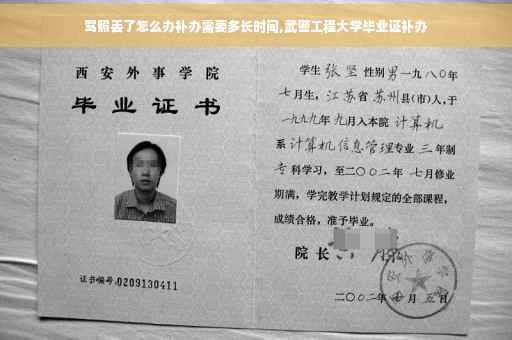 驾照丢了怎么办补办需要多长时间,武警工程大学毕业证补办
西安外事学院
毕业证书
证书编号:0209130411
学生 张坚 性别 男 一九八〇年
七月生，江苏省 苏州 县(市)人，于
一九九九年 九月入本院 计算机
系 计算机信息管理 专业 三 年制
专 科学习，至二〇〇二年 七月修业
期满，学完教学计划规定的全部课程，
成绩合格，准予毕业。
院长
二〇〇二年 月 五日